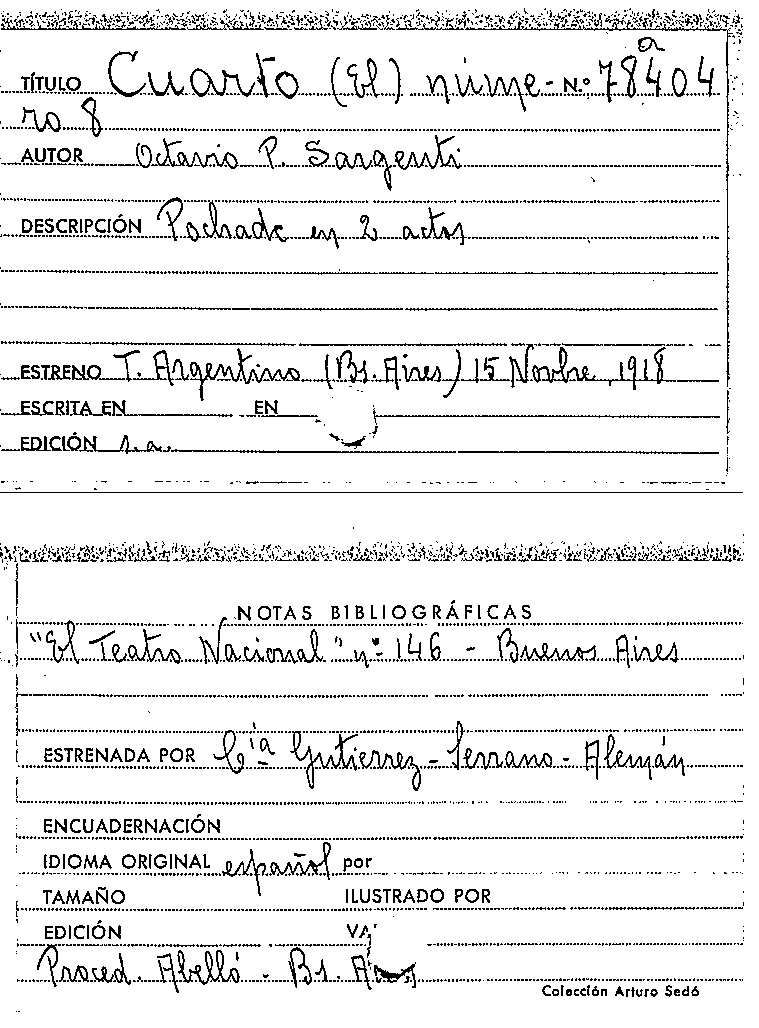 TÍTULO Cuarto (El) núme- N.º 78404
a
ro 8
AUTOR Octavio P. Sargenti
DESCRIPCIÓN Pochade en 2 actos
ESTRENO T. Argentino (Bs. Aires) 15 Novbre, 1918
ESCRITA EN EN
EDICIÓN s.a.
NOTAS BIBLIOGRÁFICAS
"El Teatro Nacional" nº 146 - Buenos Aires
ESTRENADA POR Cía Gutierrez - Serrano - Alemán
ENCUADERNACIÓN
IDIOMA ORIGINAL español por
TAMAÑO ILUSTRADO POR
EDICIÓN
Proced. Abelló - Bs. Aires
Colección Arturo Sedó